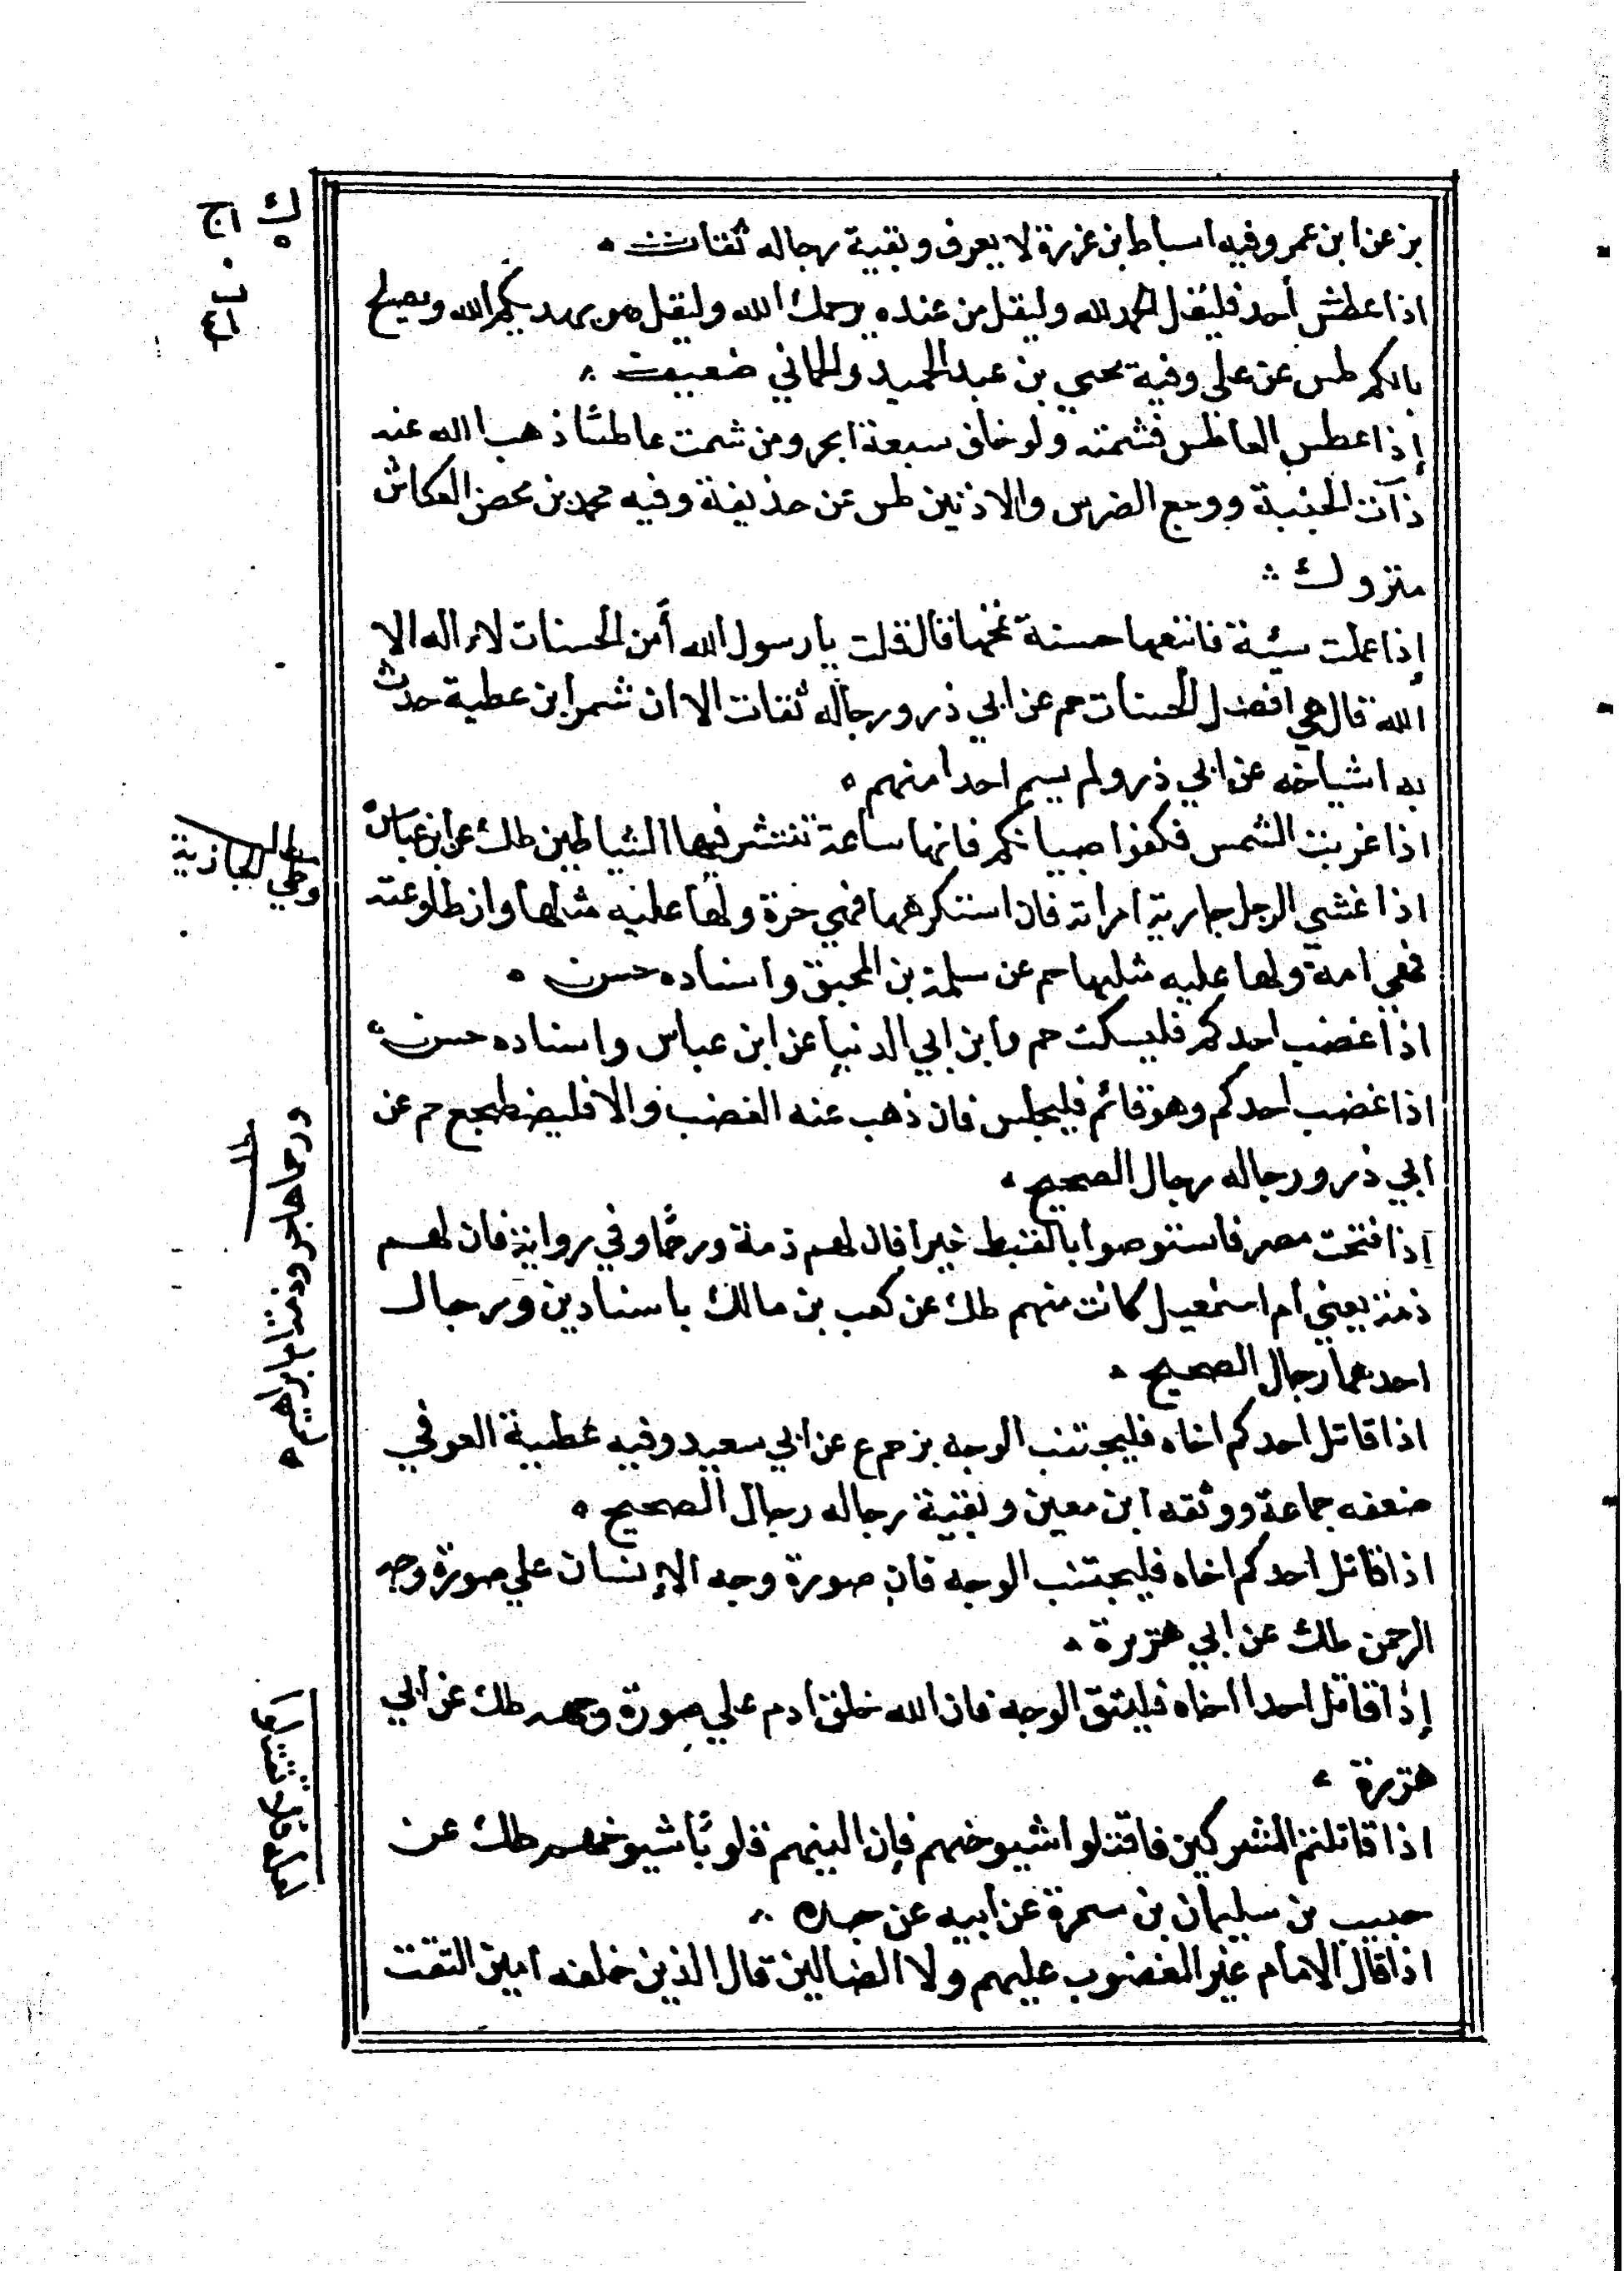 بز عن ابن عمر وفيه اسباط بن عزرة لا يعرف وبقية رجاله ثقات
اذا عطش أحد فليقل الحمد لله وليقل من عنده يرحمك الله وليقل هو يهديكم الله ويصلح
بالكم طس عن علي وفيه يحيي بن عبد الحميد والحماني ضعيف
إذا عطس العاطس فشمته ولو خلف سبعة ابحر ومن شمت عاطسًا ذهب الله عنه
ذات الجنبة ووجع الضرس والاذنين طس عن حذيفة وفيه محمد بن محصن العكاش
متروك
إذا عملت سيئة فاتبعها حسنة تمحها قال قلت يا رسول الله أمن الحسنات لا اله الا
الله قال هي افضل الحسنات حم عن ابي ذر ورجاله ثقات الا ان شمر ابن عطية حدث
به اشياخه عن ابي ذر ولم يسم احدا منهم
اذا غربت الشمس فكفوا صبيانكم فانها ساعة تنتشر فيها الشياطين طك عن ابن عباس
اذا غشي الرجل جارية امراته فان استكرهها فهي حرة ولها عليه مثلها وان طاوعته
فهي امة ولها عليه مثلها حم عن سلمة بن المحبق واسناده حسن
اذا غضب احدكم فليسكت حم وابن ابي الدنيا عن ابن عباس واسناده حسن
اذا غضب احدكم وهو قائم فليجلس فان ذهب عنه الغضب والا فليضطجع حم عن
ابي ذر ورجاله رجال الصحيح
إذا فتحت مصر فاستوصوا بالقبط خيرا فان لهم ذمة ورحمًا وفي رواية فان لهم
ذمة يعني أم اسمعيل كانت منهم طك عن كعب بن مالك باسنادين ورجال
احدهما رجال الصحيح
اذا قاتل احدكم اخاه فليجتنب الوجه بز حم ع عن ابي سعيد وفيه عطية العوفي
ضعفه جماعة ووثقه ابن معين وبقية رجاله رجال الصحيح
اذا قاتل احدكم اخاه فليجتنب الوجه فان صورة وجه الإنسان علي صورة وجه
الرحمن طك عن ابي هريرة
إذا قاتل احدا اخاه فليتق الوجه فان الله خلق ادم علي صورة وجهه طك عن ابي
هريرة
اذا قاتلتم المشركين فاقتلوا شيوخهم فإن الينهم قلوبًا شيوخهم طك عن
حبيب بن سليمان بن سمرة عن أبيه عن جده
اذا قال الامام غير المغضوب عليهم ولا الضالين قال الذين خلفه امين التقت
ورحما هاجر وذمتها ابراهيم
لعله فلا تقتلوا